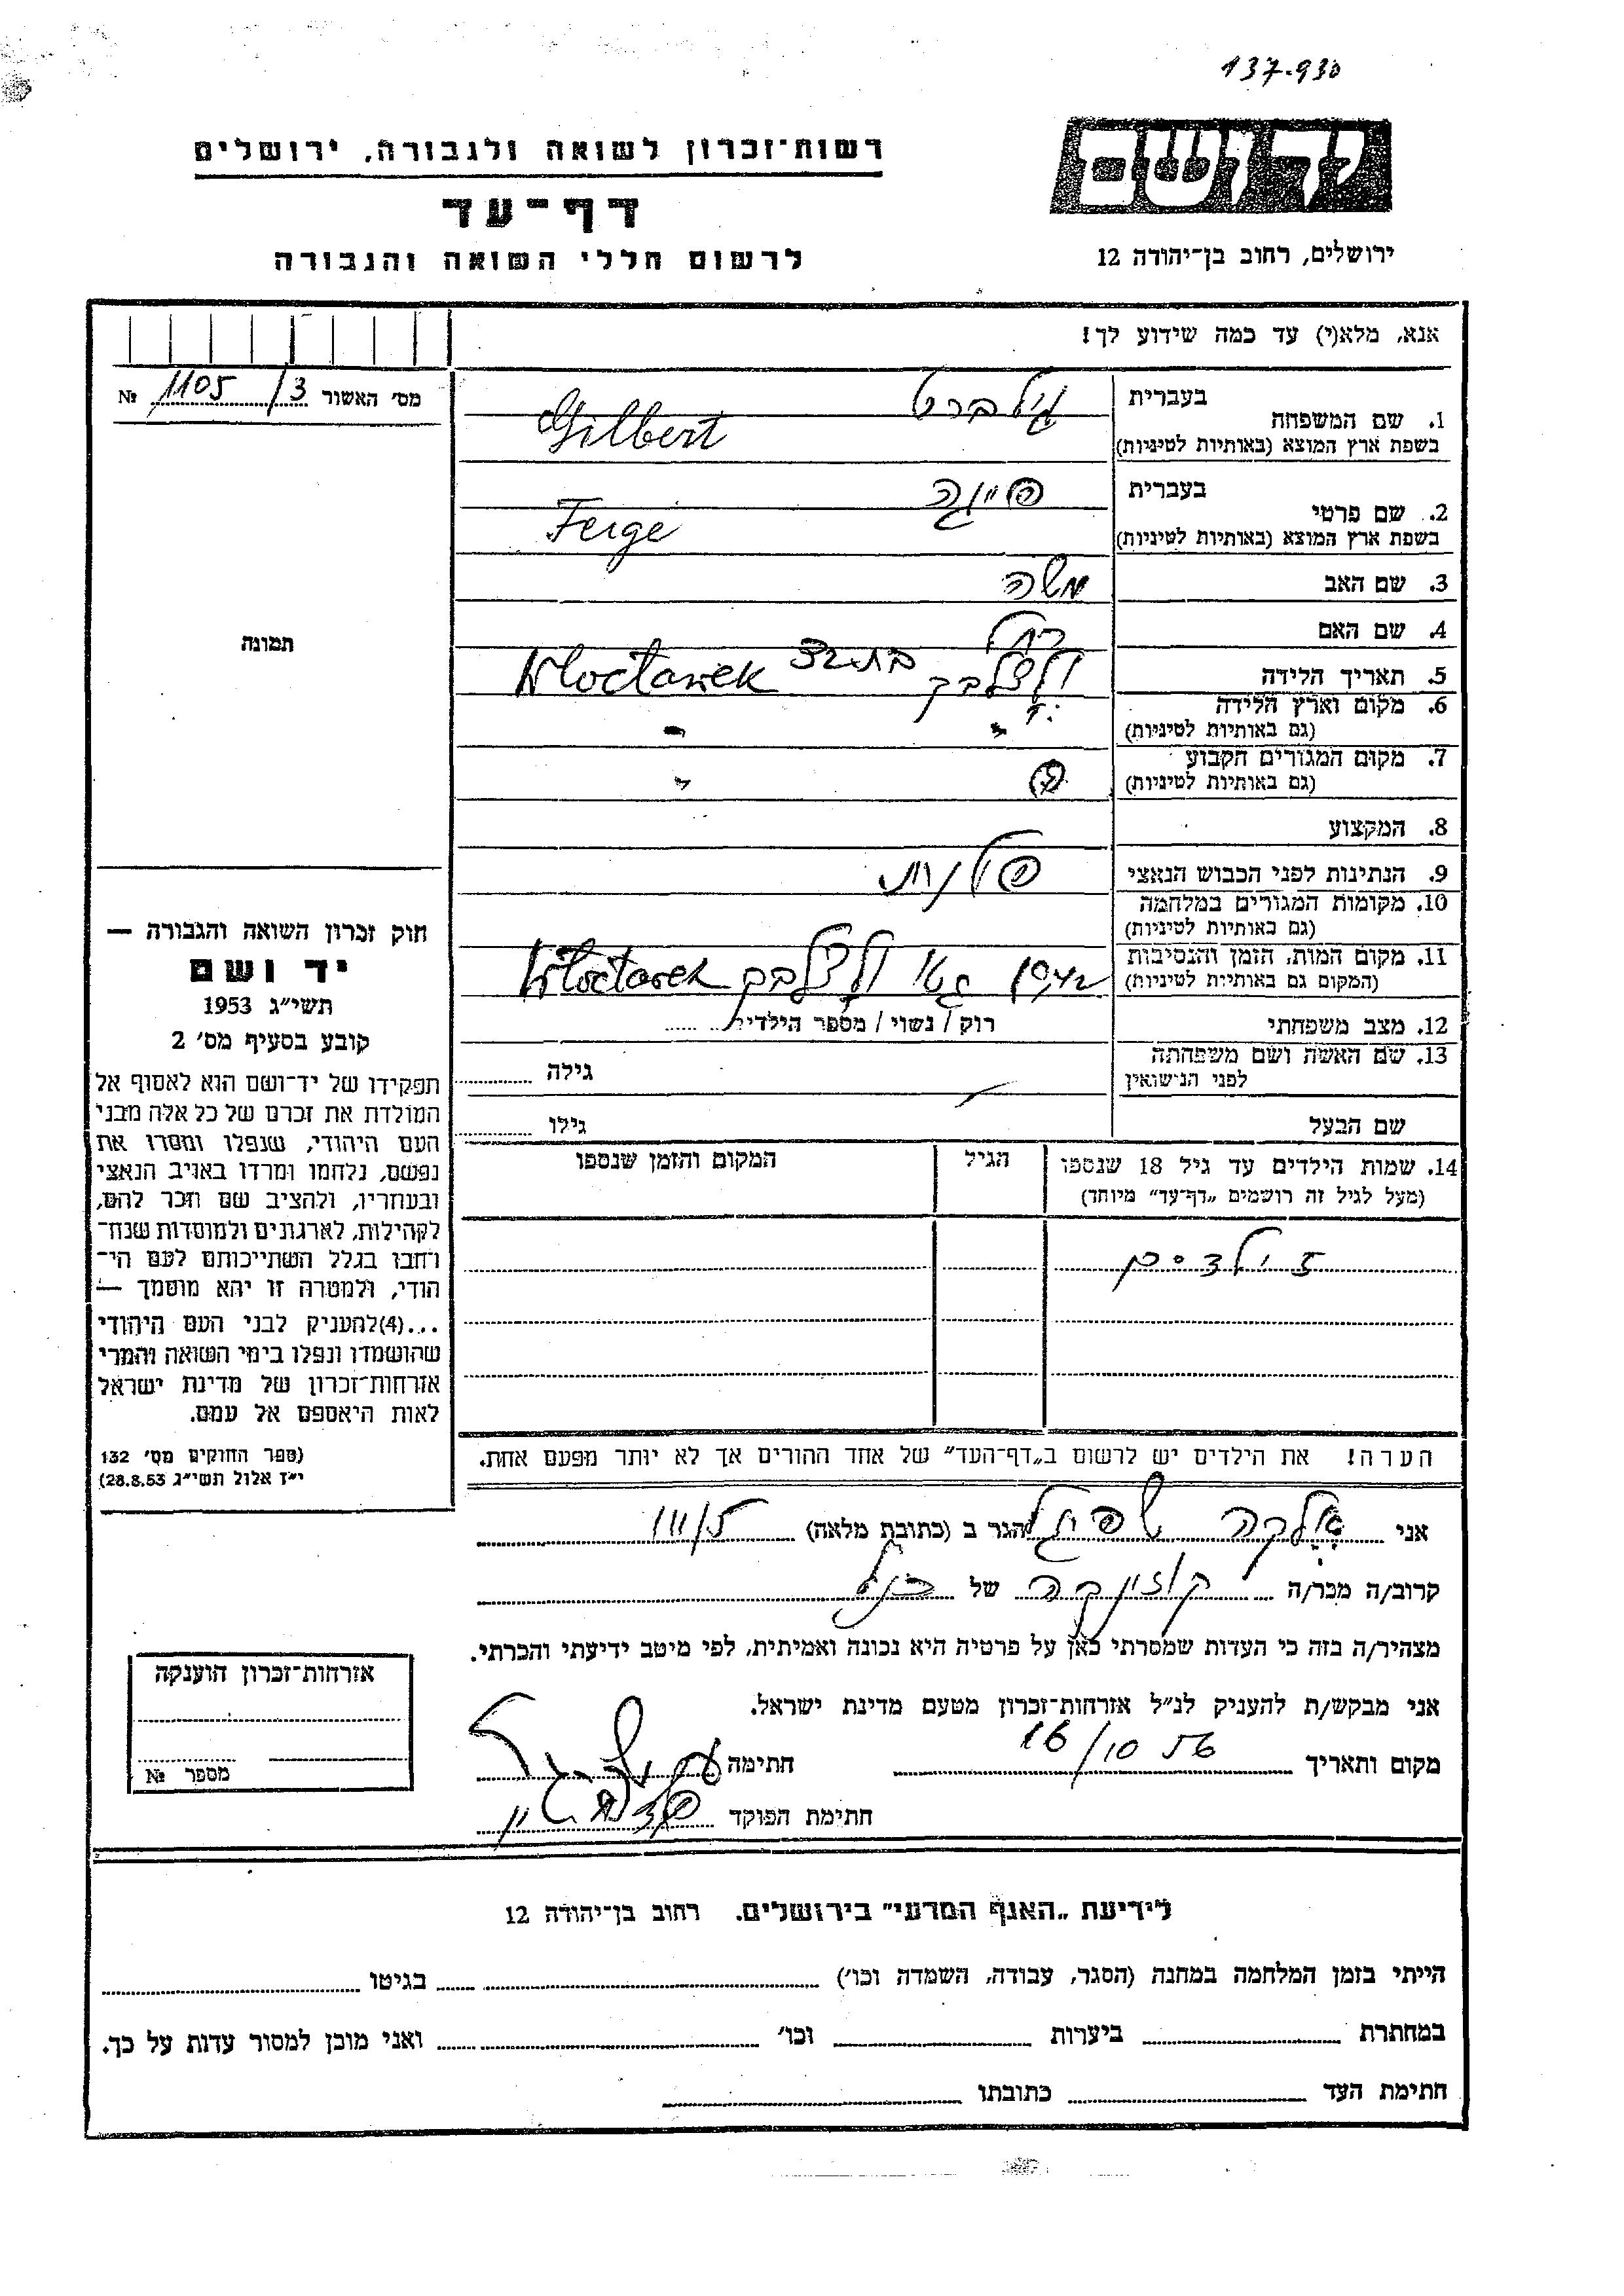 137.930
יד ושם
רשות־זכרון לשואה ולגבורה, ירושלים
דף־עד
לרשום חללי השואה והגבורה
ירושלים, רחוב בן־יהודה 12
אנא, מלא(י) עד כמה שידוע לך!
מס׳ האשור 1105/3 №
תמונה
1. שם המשפחה
בעברית גילברט
בשפת ארץ המוצא (באותיות לטיניות) Gilbert
2. שם פרטי
בעברית פייגה
בשפת ארץ המוצא (באותיות לטיניות) Feige
3. שם האב משה
4. שם האם רחל
5. תאריך הלידה
6. מקום וארץ הלידה
(גם באותיות לטיניות)
7. מקום המגורים הקבוע
(גם באותיות לטיניות)
8. המקצוע
9. הנתינות לפני הכבוש הנאצי פולנית
10. מקומות המגורים במלחמה
(גם באותיות לטיניות)
11. מקום המות, הזמן והנסיבות
(המקום גם באותיות לטיניות)
12. מצב משפחתי רוק / נשוי / מספר הילדים
13. שם האשה ושם משפחתה גילה
לפני הנישואין
שם הבעל גילו
14. שמות הילדים עד גיל 18 שנספו הגיל המקום והזמן שנספו
(מעל לגיל זה רושמים „דף־עד” מיוחד)
הערה! את הילדים יש לרשום ב„דף־העד” של אחד ההורים אך לא יותר מפעם אחת.
חוק זכרון השואה והגבורה —
יד ושם
תשי״ג 1953
קובע בסעיף מס׳ 2
תפקידו של יד־ושם הוא לאסוף אל
המולדת את זכרם של כל אלה מבני
העם היהודי, שנפלו ומסרו את
נפשם, נלחמו ומרדו באויב הנאצי
ובעוזריו, ולהציב שם וזכר להם,
לקהילות, לארגונים ולמוסדות שנח־
רבו בגלל השתייכותם לעם הי־
הודי, ולמטרה זו יהא מוסמך —
...(4)להעניק לבני העם היהודי
שהושמדו ונפלו בימי השואה והמרי
אזרחות־זכרון של מדינת ישראל
לאות היאספם אל עמם.
(ספר החוקים מס׳ 132
י״ז אלול תשי״ג 28.8.53)
אני אלקה שפיגל הגר ב (כתובת מלאה)
קרוב/ה מכר/ה קוזינקה של הנ״ל
מצהיר/ה בזה כי העדות שמסרתי כאן על פרטיה היא נכונה ואמיתית, לפי מיטב ידיעתי והכרתי.
אני מבקש/ת להעניק לנ״ל אזרחות־זכרון מטעם מדינת ישראל.
מקום ותאריך 16/10 56 חתימה
חתימת הפוקד
אזרחות־זכרון הוענקה
מספר №
לידיעת „האגף המדעי” בירושלים. רחוב בן־יהודה 12
הייתי בזמן המלחמה במחנה (הסגר, עבודה, השמדה וכו׳) בגיטו
במחתרת ביערות וכו׳ ואני מוכן למסור עדות על כך.
חתימת העד כתובתו